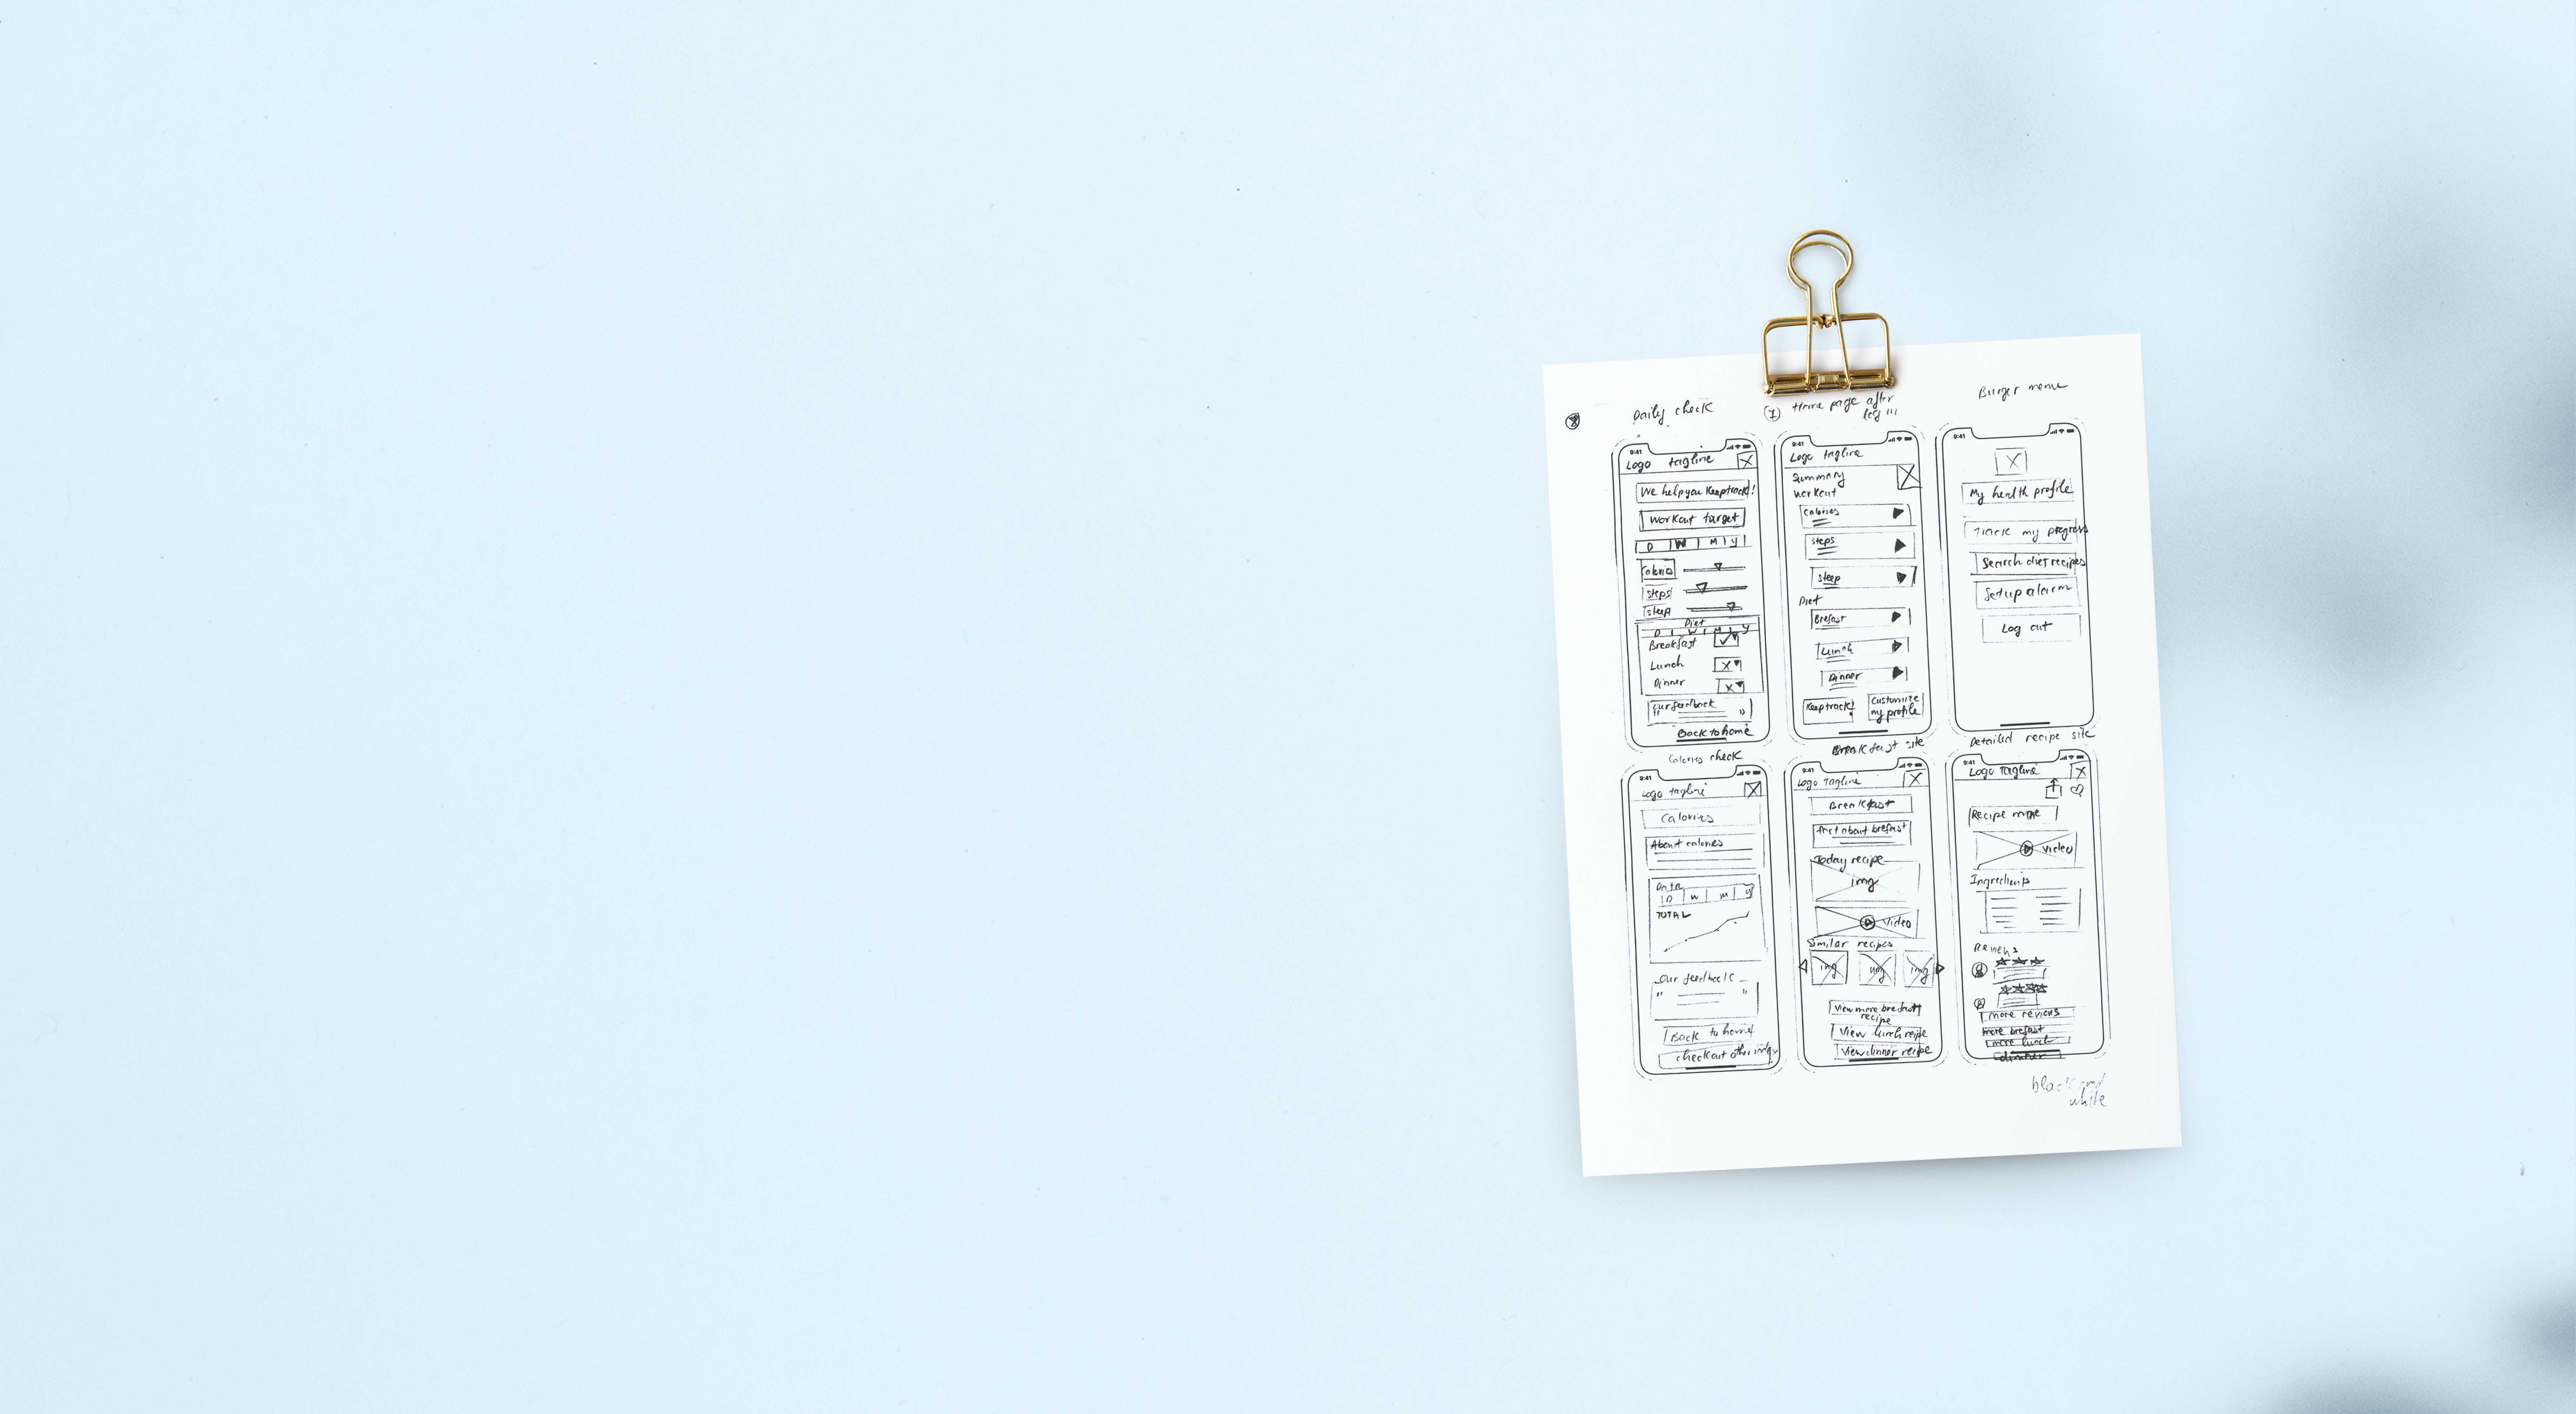 Daily check
(7) Home page after
log in
Burger menu
9:41
Logo tagline
We help you Keep track!
Workout target
D | W | M | Y
Calories
Steps
Sleep
Diet
D | W | M | Y
Breakfast
Lunch
Dinner
Our feedback
" "
Back to home
9:41
Logo tagline
Summary
workout
Calories
Steps
Sleep
Diet
Brefast
Lunch
Dinner
Keep track!
Customize
my profile
9:41
X
My health profile
Track my progress
Search diet recipes
Set up alarm
Log out
Calories check
Breakfast site
Detailed recipe site
9:41
Logo tagline
Calories
About calories
Data
D | W | M | Y
TOTAL
Our feedback
" "
Back to home
check out other
9:41
Logo Tagline
Breakfast
fact about brefast
Today recipe
img
Video
Similar recipes
img img img
View more breafast
recipe
View lunch recipe
View dinner recipe
9:41
Logo Tagline
Recipe name
Video
Ingredients
Reviews
more reviews
more brefast
more lunch
dinner
black and
white